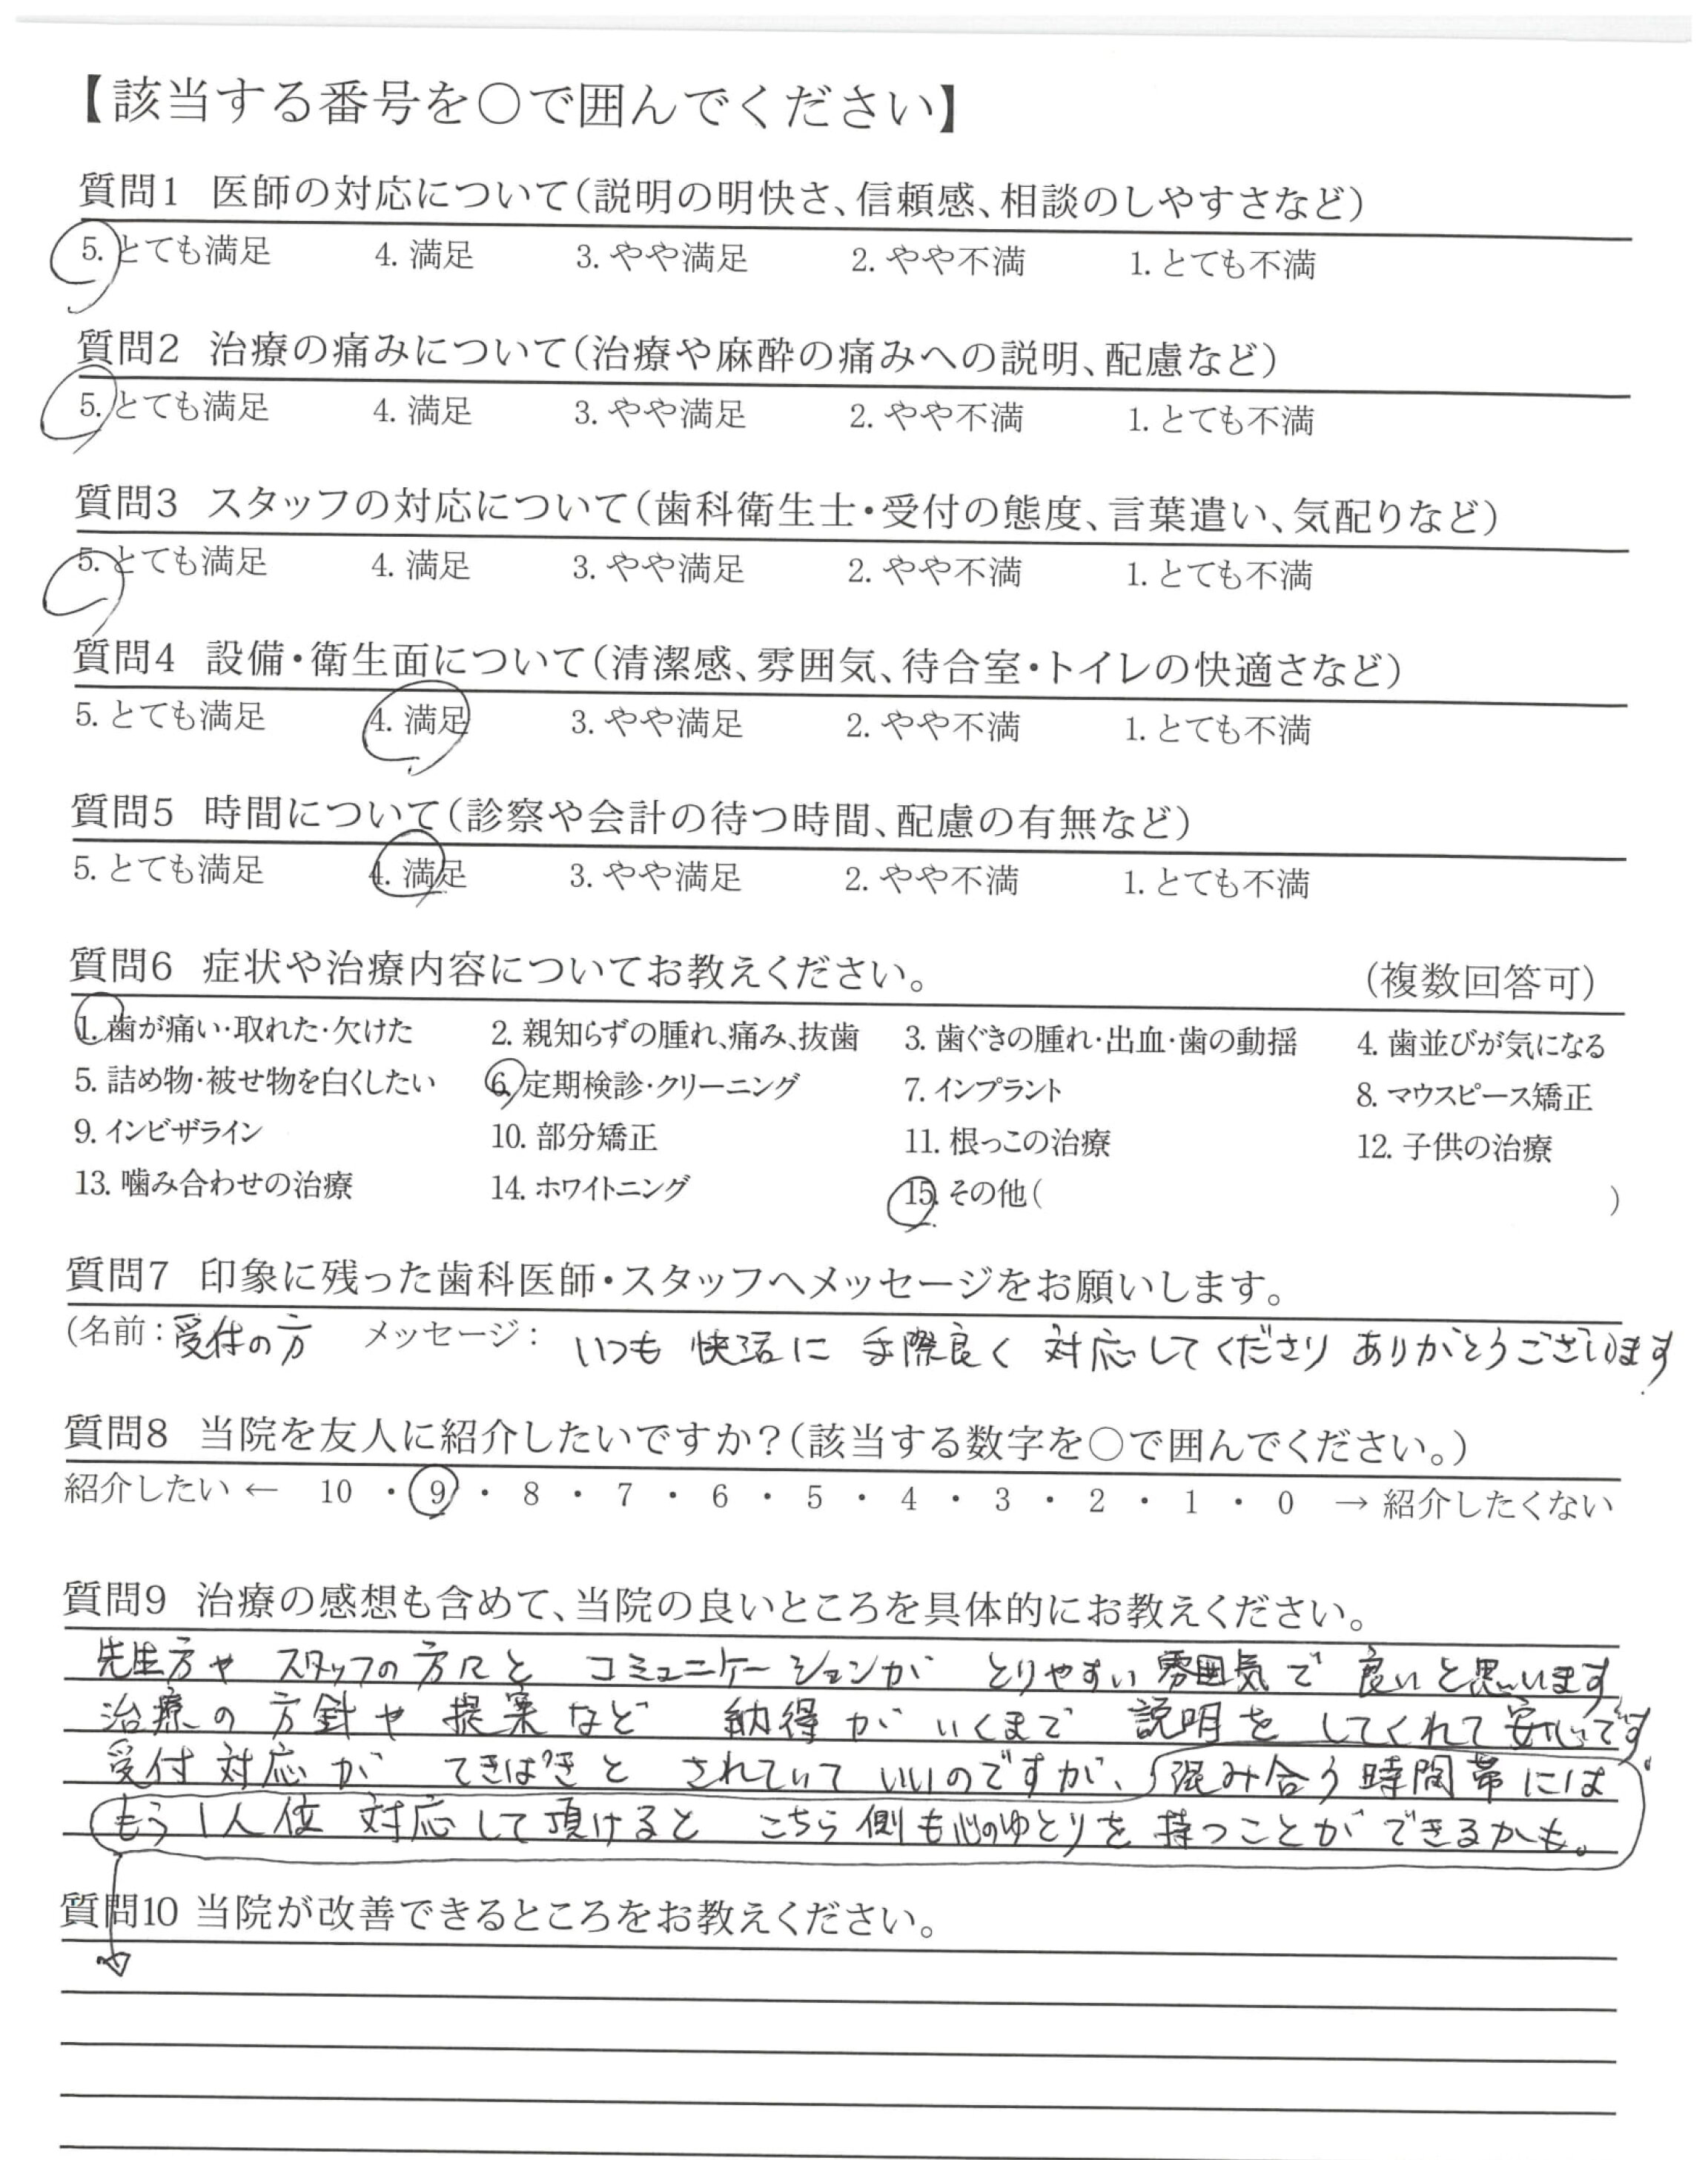 【該当する番号を○で囲んでください】
質問1 医師の対応について（説明の明快さ、信頼感、相談のしやすさなど）
5. とても満足 4. 満足 3. やや満足 2. やや不満 1. とても不満
質問2 治療の痛みについて（治療や麻酔の痛みへの説明、配慮など）
5. とても満足 4. 満足 3. やや満足 2. やや不満 1. とても不満
質問3 スタッフの対応について（歯科衛生士・受付の態度、言葉遣い、気配りなど）
5. とても満足 4. 満足 3. やや満足 2. やや不満 1. とても不満
質問4 設備・衛生面について（清潔感、雰囲気、待合室・トイレの快適さなど）
5. とても満足 4. 満足 3. やや満足 2. やや不満 1. とても不満
質問5 時間について（診察や会計の待つ時間、配慮の有無など）
5. とても満足 4. 満足 3. やや満足 2. やや不満 1. とても不満
質問6 症状や治療内容についてお教えください。 （複数回答可）
1. 歯が痛い・取れた・欠けた 2. 親知らずの腫れ、痛み、抜歯 3. 歯ぐきの腫れ・出血・歯の動揺 4. 歯並びが気になる
5. 詰め物・被せ物を白くしたい 6. 定期検診・クリーニング 7. インプラント 8. マウスピース矯正
9. インビザライン 10. 部分矯正 11. 根っこの治療 12. 子供の治療
13. 噛み合わせの治療 14. ホワイトニング 15. その他（ ）
質問7 印象に残った歯科医師・スタッフへメッセージをお願いします。
（名前：受付の方 メッセージ： いつも 快活に 手際良く 対応してくださり ありがとうございます
質問8 当院を友人に紹介したいですか？（該当する数字を○で囲んでください。）
紹介したい ← 10 ・ 9 ・ 8 ・ 7 ・ 6 ・ 5 ・ 4 ・ 3 ・ 2 ・ 1 ・ 0 → 紹介したくない
質問9 治療の感想も含めて、当院の良いところを具体的にお教えください。
先生方や スタッフの方々と コミュニケーションが とりやすい雰囲気で 良いと思います。
治療の方針や 提案など 納得が いくまで 説明を してくれて 安心です。
受付対応が てきぱきと されていて いいのですが、混み合う時間帯には
もう1人位 対応して頂けると こちら側も心のゆとりを 持つことが できるかも。
質問10 当院が改善できるところをお教えください。